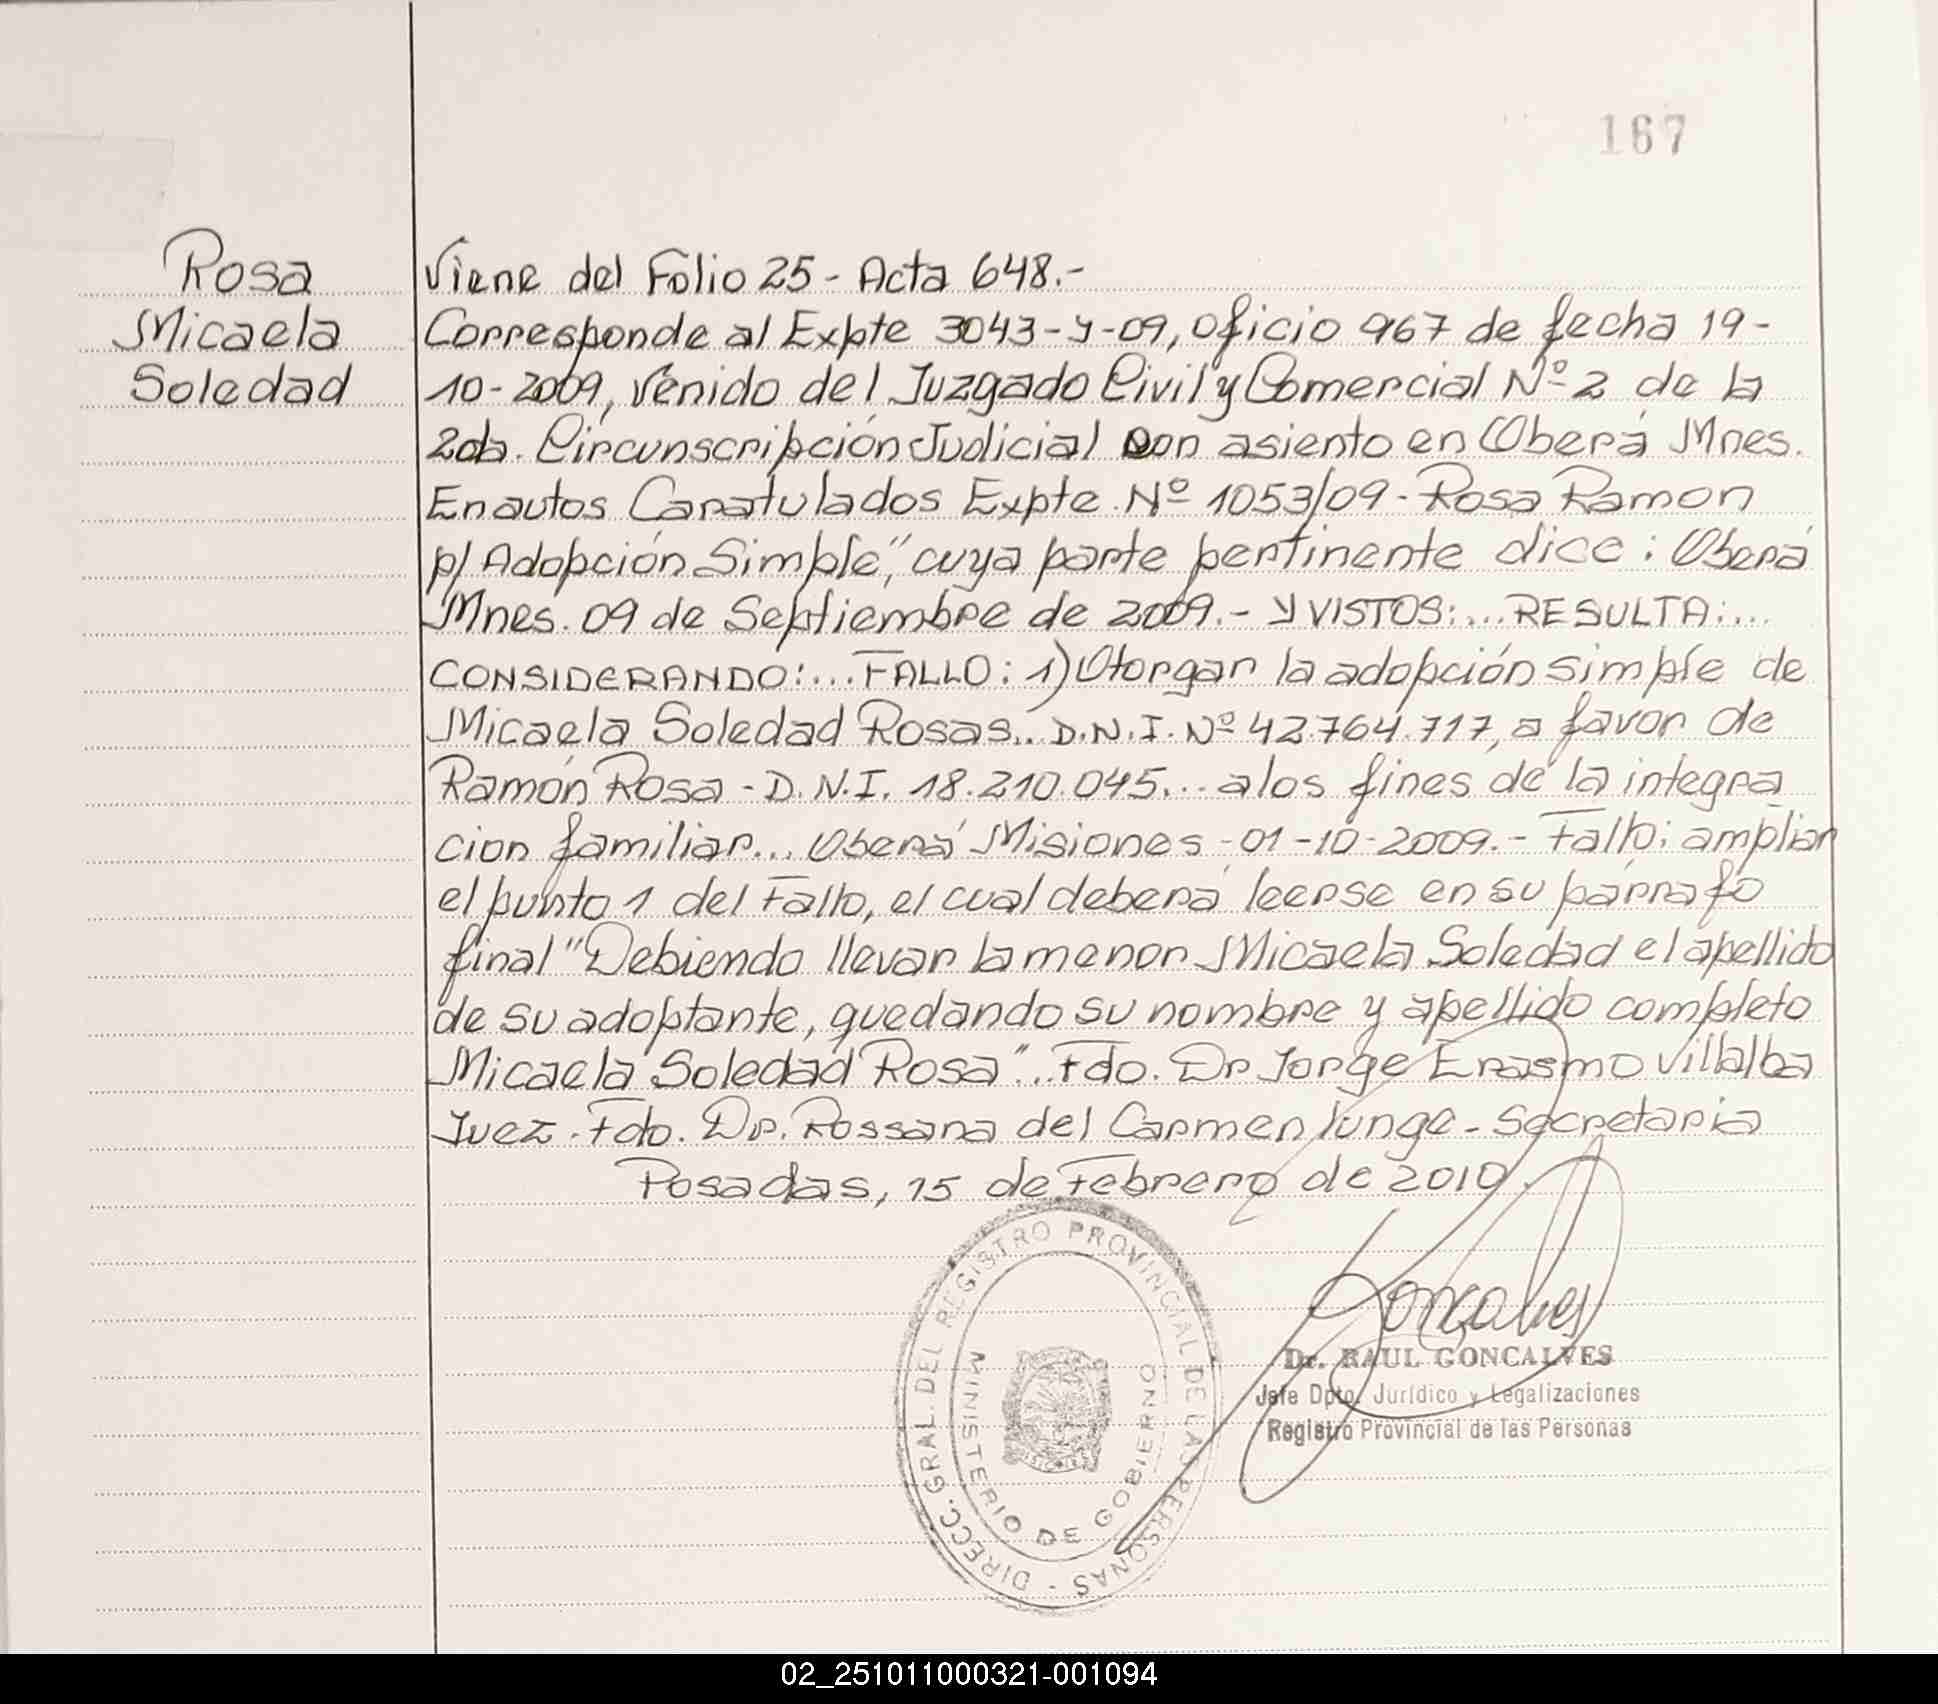 167
Rosa
Micaela
Soledad
Viene del Folio 25 - Acta 648.-
Corresponde al Expte 3043-y-09, oficio 967 de fecha 19-
10-2009, Venido del Juzgado Civil y Comercial Nº 2 de la
2da. Circunscripción Judicial con asiento en Oberá Mnes.
En autos Caratulados Expte. Nº 1053/09 - Rosa Ramon
p/ Adopción Simple", cuya parte pertinente dice: Oberá
Mnes. 09 de Septiembre de 2009.- Y VISTOS:... RESULTA:...
CONSIDERANDO:... FALLO: 1) Otorgar la adopción simple de
Micaela Soledad Rosas... D.N.I. Nº 42.764.717, a favor de
Ramón Rosa - D.N.I. 18.210.045... a los fines de la integra
cion familiar... Oberá Misiones - 01-10-2009.- Fallo: ampliar
el punto 1 del Fallo, el cual deberá leerse en su párrafo
final "Debiendo llevar la menor Micaela Soledad el apellido
de su adoptante, quedando su nombre y apellido completo
Micaela Soledad Rosa"... Fdo. Dr Jorge Erasmo Villalba
Juez. Fdo. Dr. Rossana del Carmen Iunge - Secretaria
Posadas, 15 de Febrero de 2010.
DIRECC. GRAL. DEL REGISTRO PROVINCIAL DE LAS PERSONAS -
MINISTERIO DE GOBIERNO
Goncalves
Dr. RAUL GONCALVES
Jefe Dpto. Jurídico y Legalizaciones
Registro Provincial de las Personas
02_251011000321-001094